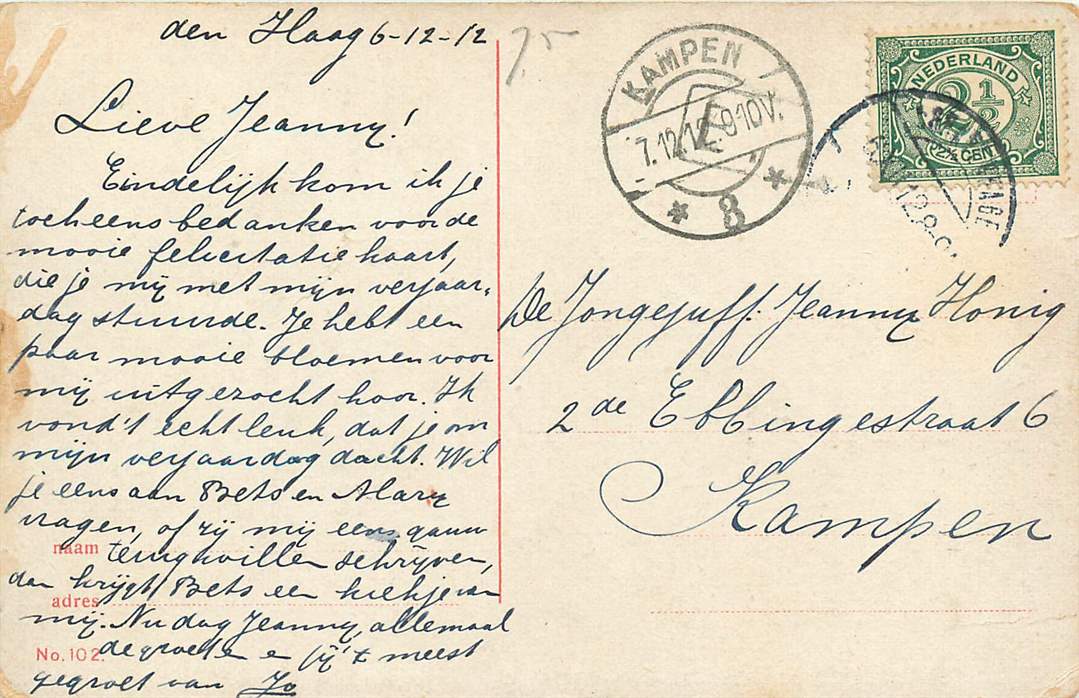 den Haag 6-12-12
Lieve Jeanny!
Eindelijk kom ik je
toch eens bedanken voor de
mooie felicitatie kaart,
die je mij met mijn verjaar-
dag stuurde. Je hebt een
paar mooie bloemen voor
mij uitgezocht hoor. Ik
vond 't echt leuk, dat je om
mijn verjaardag dacht. Wil
je eens aan Bets en Mary
vragen, of zij mij eens gauw
terug willen schrijven,
dan krijgt Bets een kiekje van
mij. Nu dag Jeanny, allemaal
de groeten en jij 't meest
gegroet van Jo
naam
adres
No. 102.
7.5
KAMPEN
7.12.12. 9-10V.
8
NEDERLAND
2 1/2
2½ CENT
De Jongejuff. Jeanny Honig
2de Ebbingestraat 6
Kampen